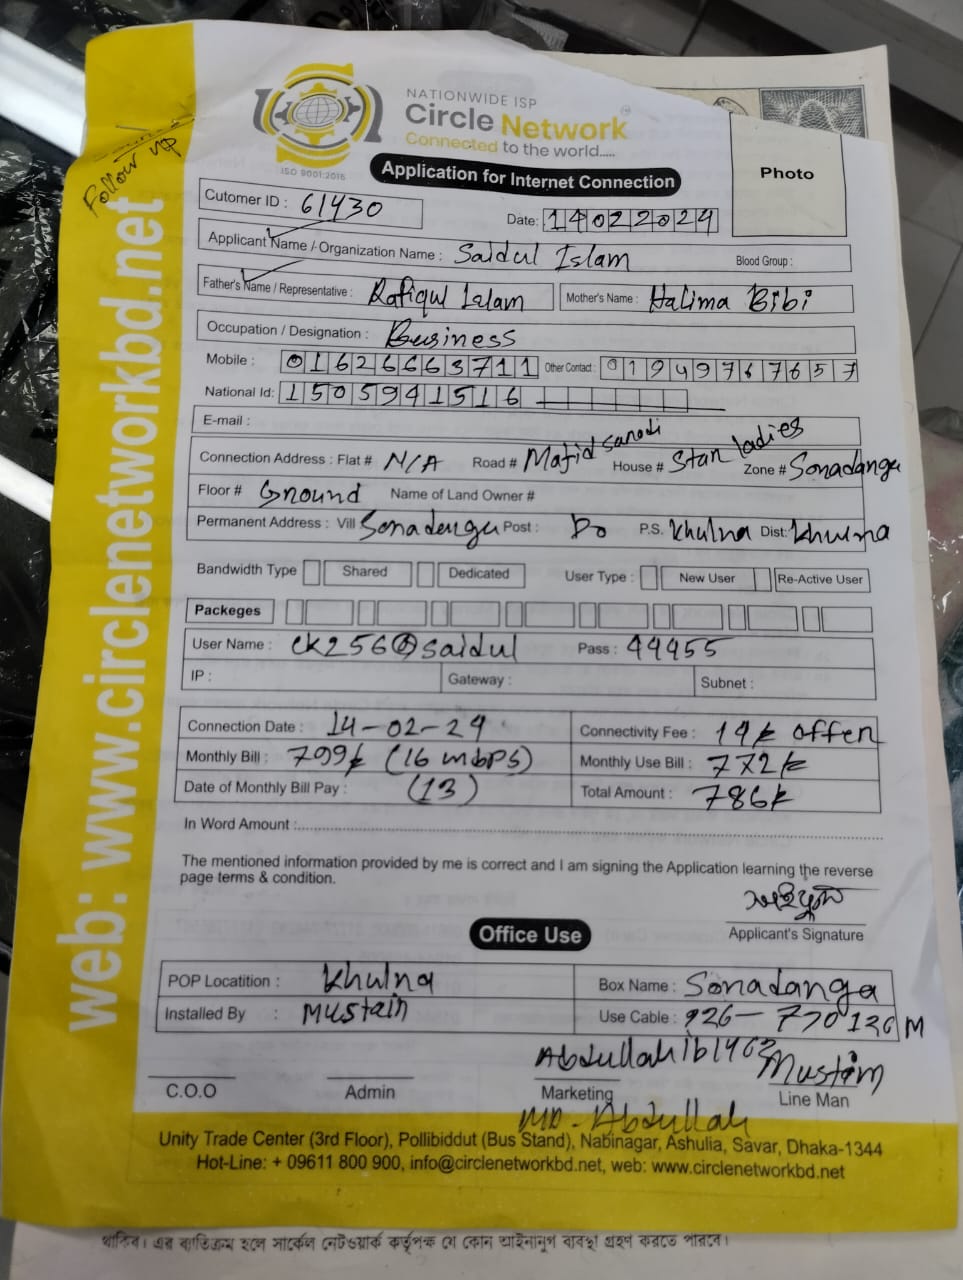 NATIONWIDE ISP
Circle Network
Connected to the world.....
ISO 9001:2015
Application for Internet Connection
Photo
Follow up
web: www.circlenetworkbd.net
Cutomer ID : 61430
Date: 14022024
Applicant Name / Organization Name : Saidul Islam Blood Group :
Father's Name / Representative : Rafiqul Islam Mother's Name : Halima Bibi
Occupation / Designation : Business
Mobile : 01626663711 Other Contact : 01949767657
National Id: 1505941516
E-mail :
Connection Address : Flat # N/A Road # Majid Sarodi House # Star ladies Zone # Sonadanga
Floor # Ground Name of Land Owner #
Permanent Address : Vill Sonadanga Post : Do P.S. Khulna Dist: Khulna
Bandwidth Type Shared Dedicated User Type : New User Re-Active User
Packeges
User Name : CK256@saidul Pass : 44455
IP : Gateway : Subnet :
Connection Date : 14-02-24 Connectivity Fee : 14৳ offer
Monthly Bill : 799৳ (16 mbps) Monthly Use Bill : 772৳
Date of Monthly Bill Pay : (13) Total Amount : 786৳
In Word Amount :
The mentioned information provided by me is correct and I am signing the Application learning the reverse
page terms & condition.
সাইদুল
Applicant's Signature
Office Use
POP Locatition : Khulna Box Name : Sonadanga
Installed By : Mustain Use Cable : 926- 770 136 M
Abdullahib1463 Mustain
C.O.O Admin Marketing Line Man
MD. Abdullah
Unity Trade Center (3rd Floor), Pollibiddut (Bus Stand), Nabinagar, Ashulia, Savar, Dhaka-1344
Hot-Line: + 09611 800 900, info@circlenetworkbd.net, web: www.circlenetworkbd.net
থাকিব। এর ব্যতিক্রম হলে সার্কেল নেটওয়ার্ক কর্তৃপক্ষ যে কোন আইনানুগ ব্যবস্থা গ্রহণ করতে পারবে।